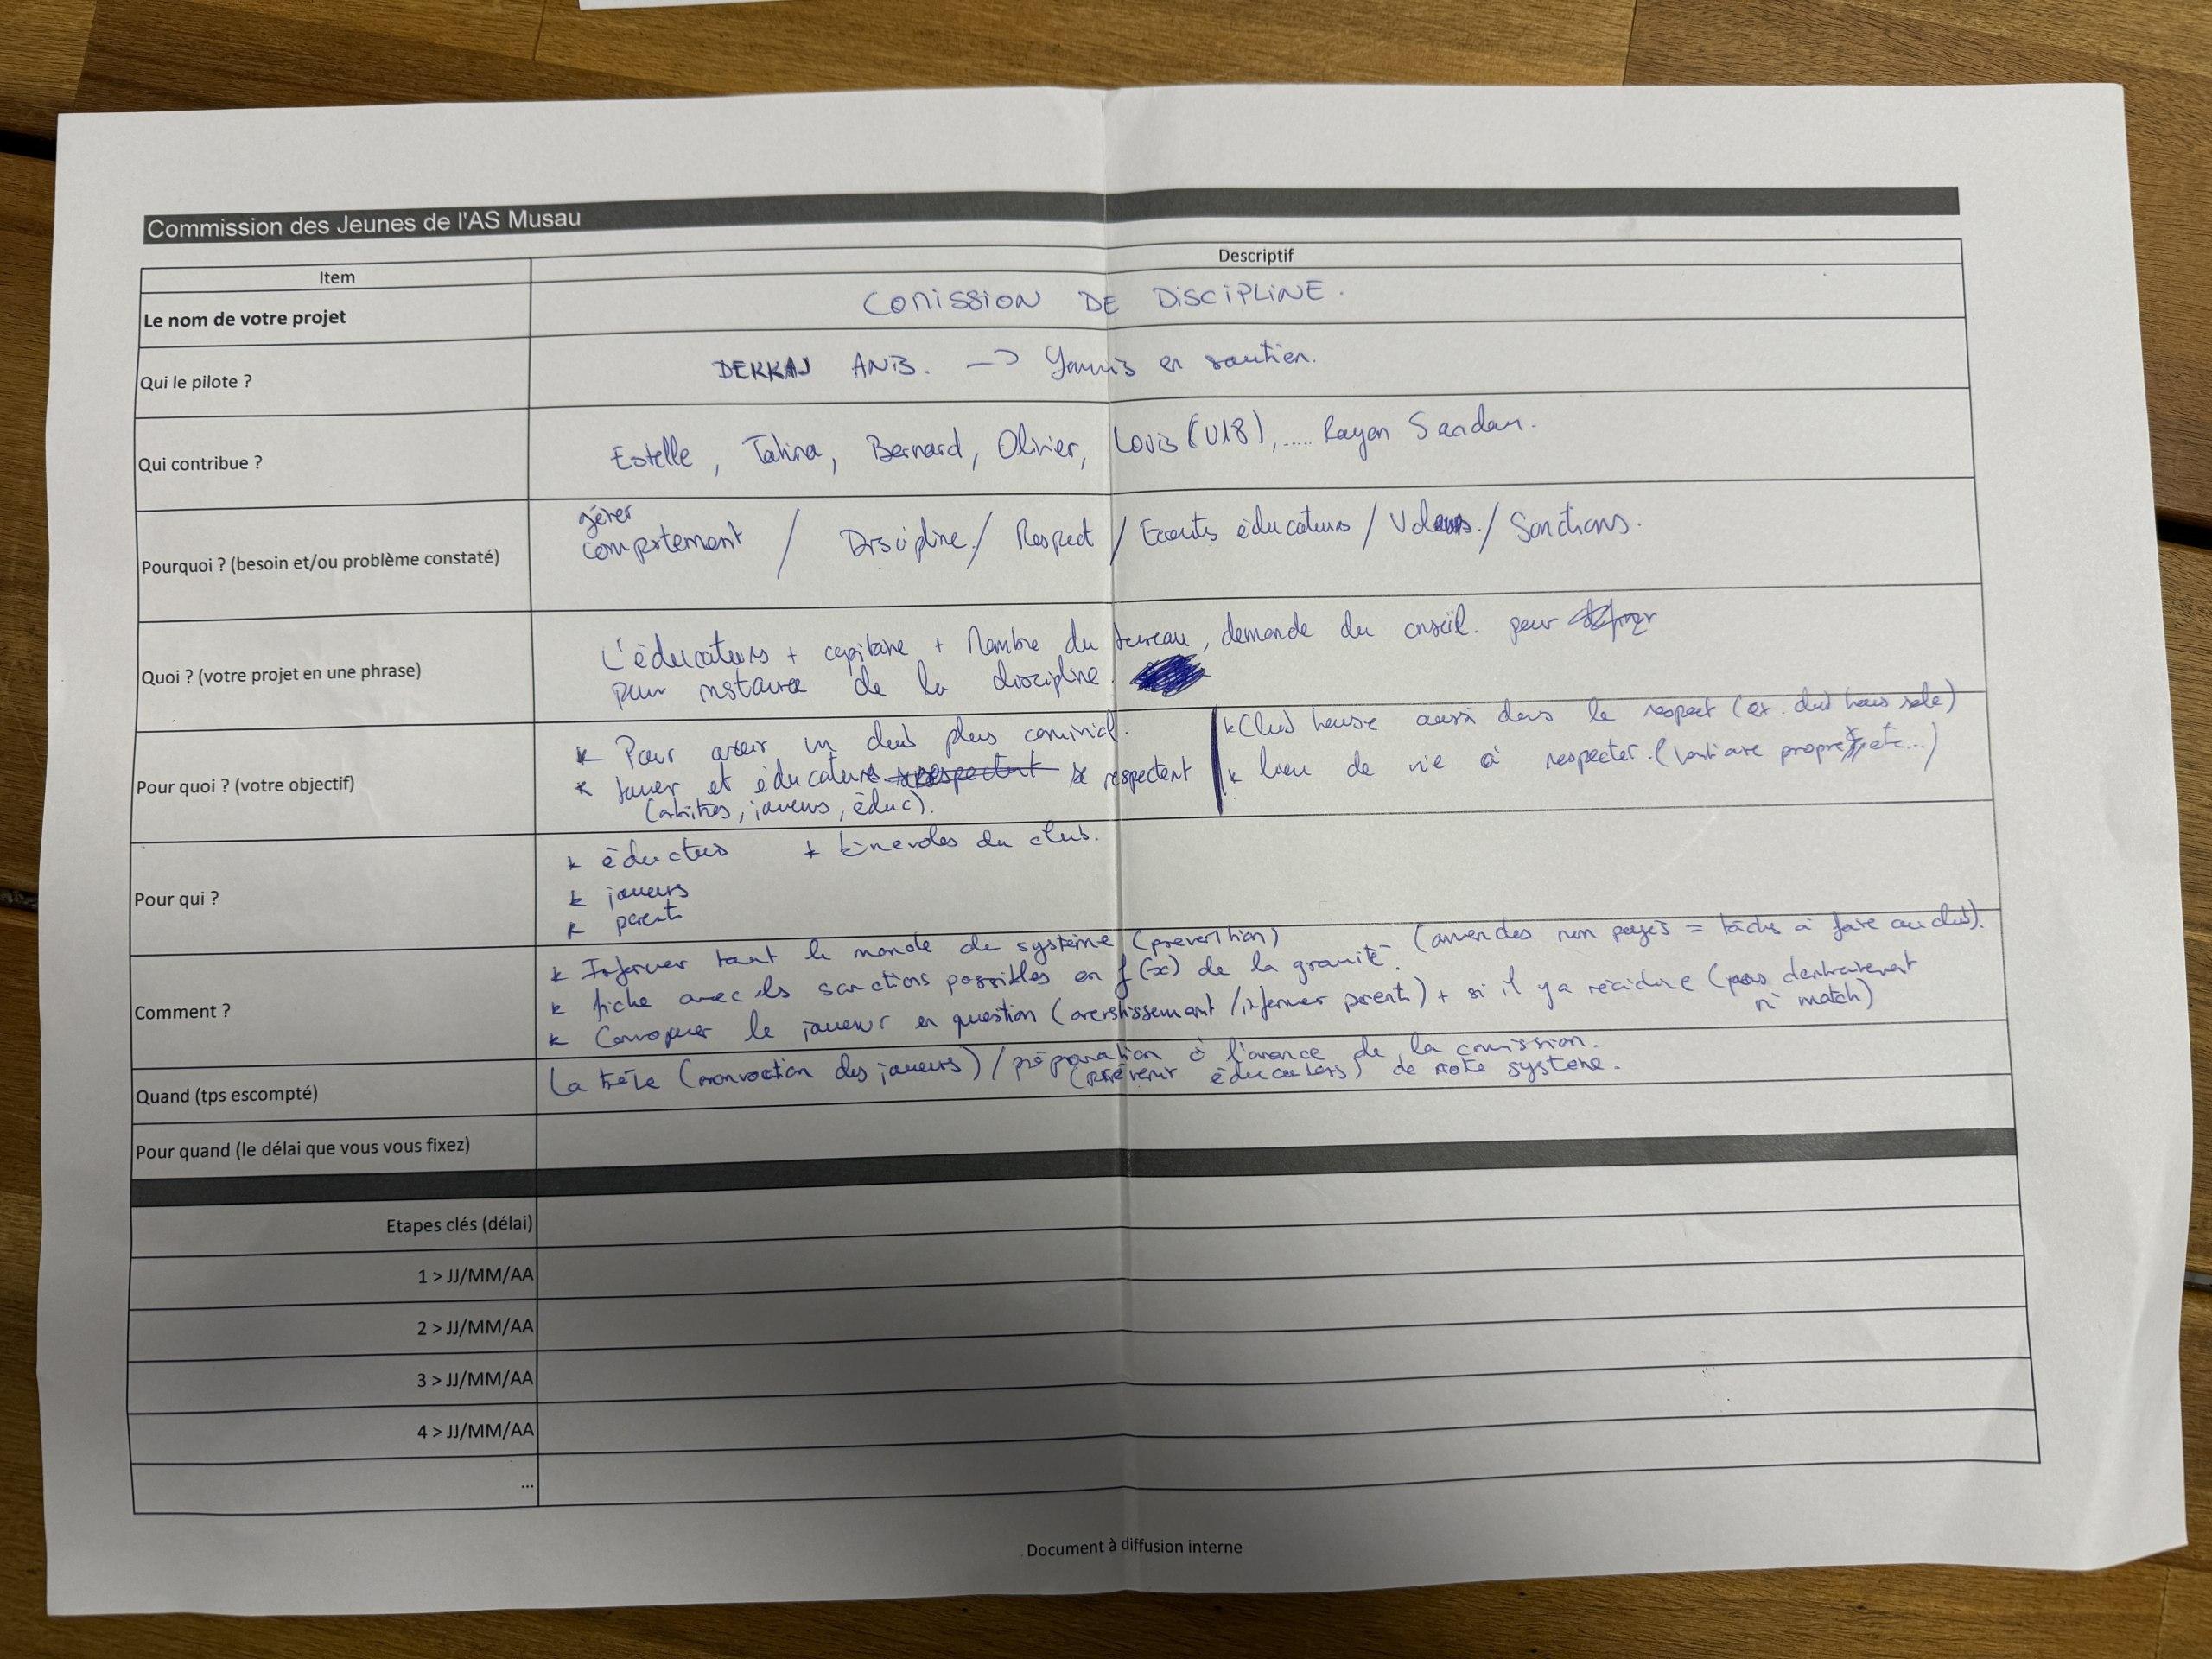 Commission des Jeunes de l'AS Musau
Item
Descriptif
Le nom de votre projet
COMISSION DE DISCIPLINE.
Qui le pilote ?
ANIS. -> Yannis en soutien.
Qui contribue ?
Estelle, Tahina, Bernard, Olivier, Louis (U18), ..... Rayan
Pourquoi ? (besoin et/ou problème constaté)
gérer
comportement / Discipline / Respect / Ecoutes éducateurs / Valeurs. / Sanctions.
Quoi ? (votre projet en une phrase)
L'éducateurs + capitaine + Membre du bureau, demande du conseil. pour
pour instaurer de la discipline.
Pour quoi ? (votre objectif)
* Pour avoir un club plus convivial.
* Jouer et éducateurs se respectent
(arbitres, joueurs, éduc).
* Club house aussi dans le respect (ex. club house sale)
* lieu de vie à respecter. (vestiaire propre, etc...)
Pour qui ?
* éducteurs * bénévoles du club.
* joueurs
* parents
Comment ?
* Informer tout le monde du système (prévention)
* fiche avec les sanctions possibles en f(x) de la gravité. (amendes non payés = tâches à faire au club).
* Convoquer le joueur en question (averstissement / informer parents) + si il y a récidive (pas d'entrainement
ni match)
Quand (tps escompté)
La trêve (convoction des joueurs) / préparation à l'avance de la comission.
(prévenir éducateurs) de notre système.
Pour quand (le délai que vous vous fixez)
Etapes clés (délai)
1 > JJ/MM/AA
2 > JJ/MM/AA
3 > JJ/MM/AA
4 > JJ/MM/AA
...
Document à diffusion interne